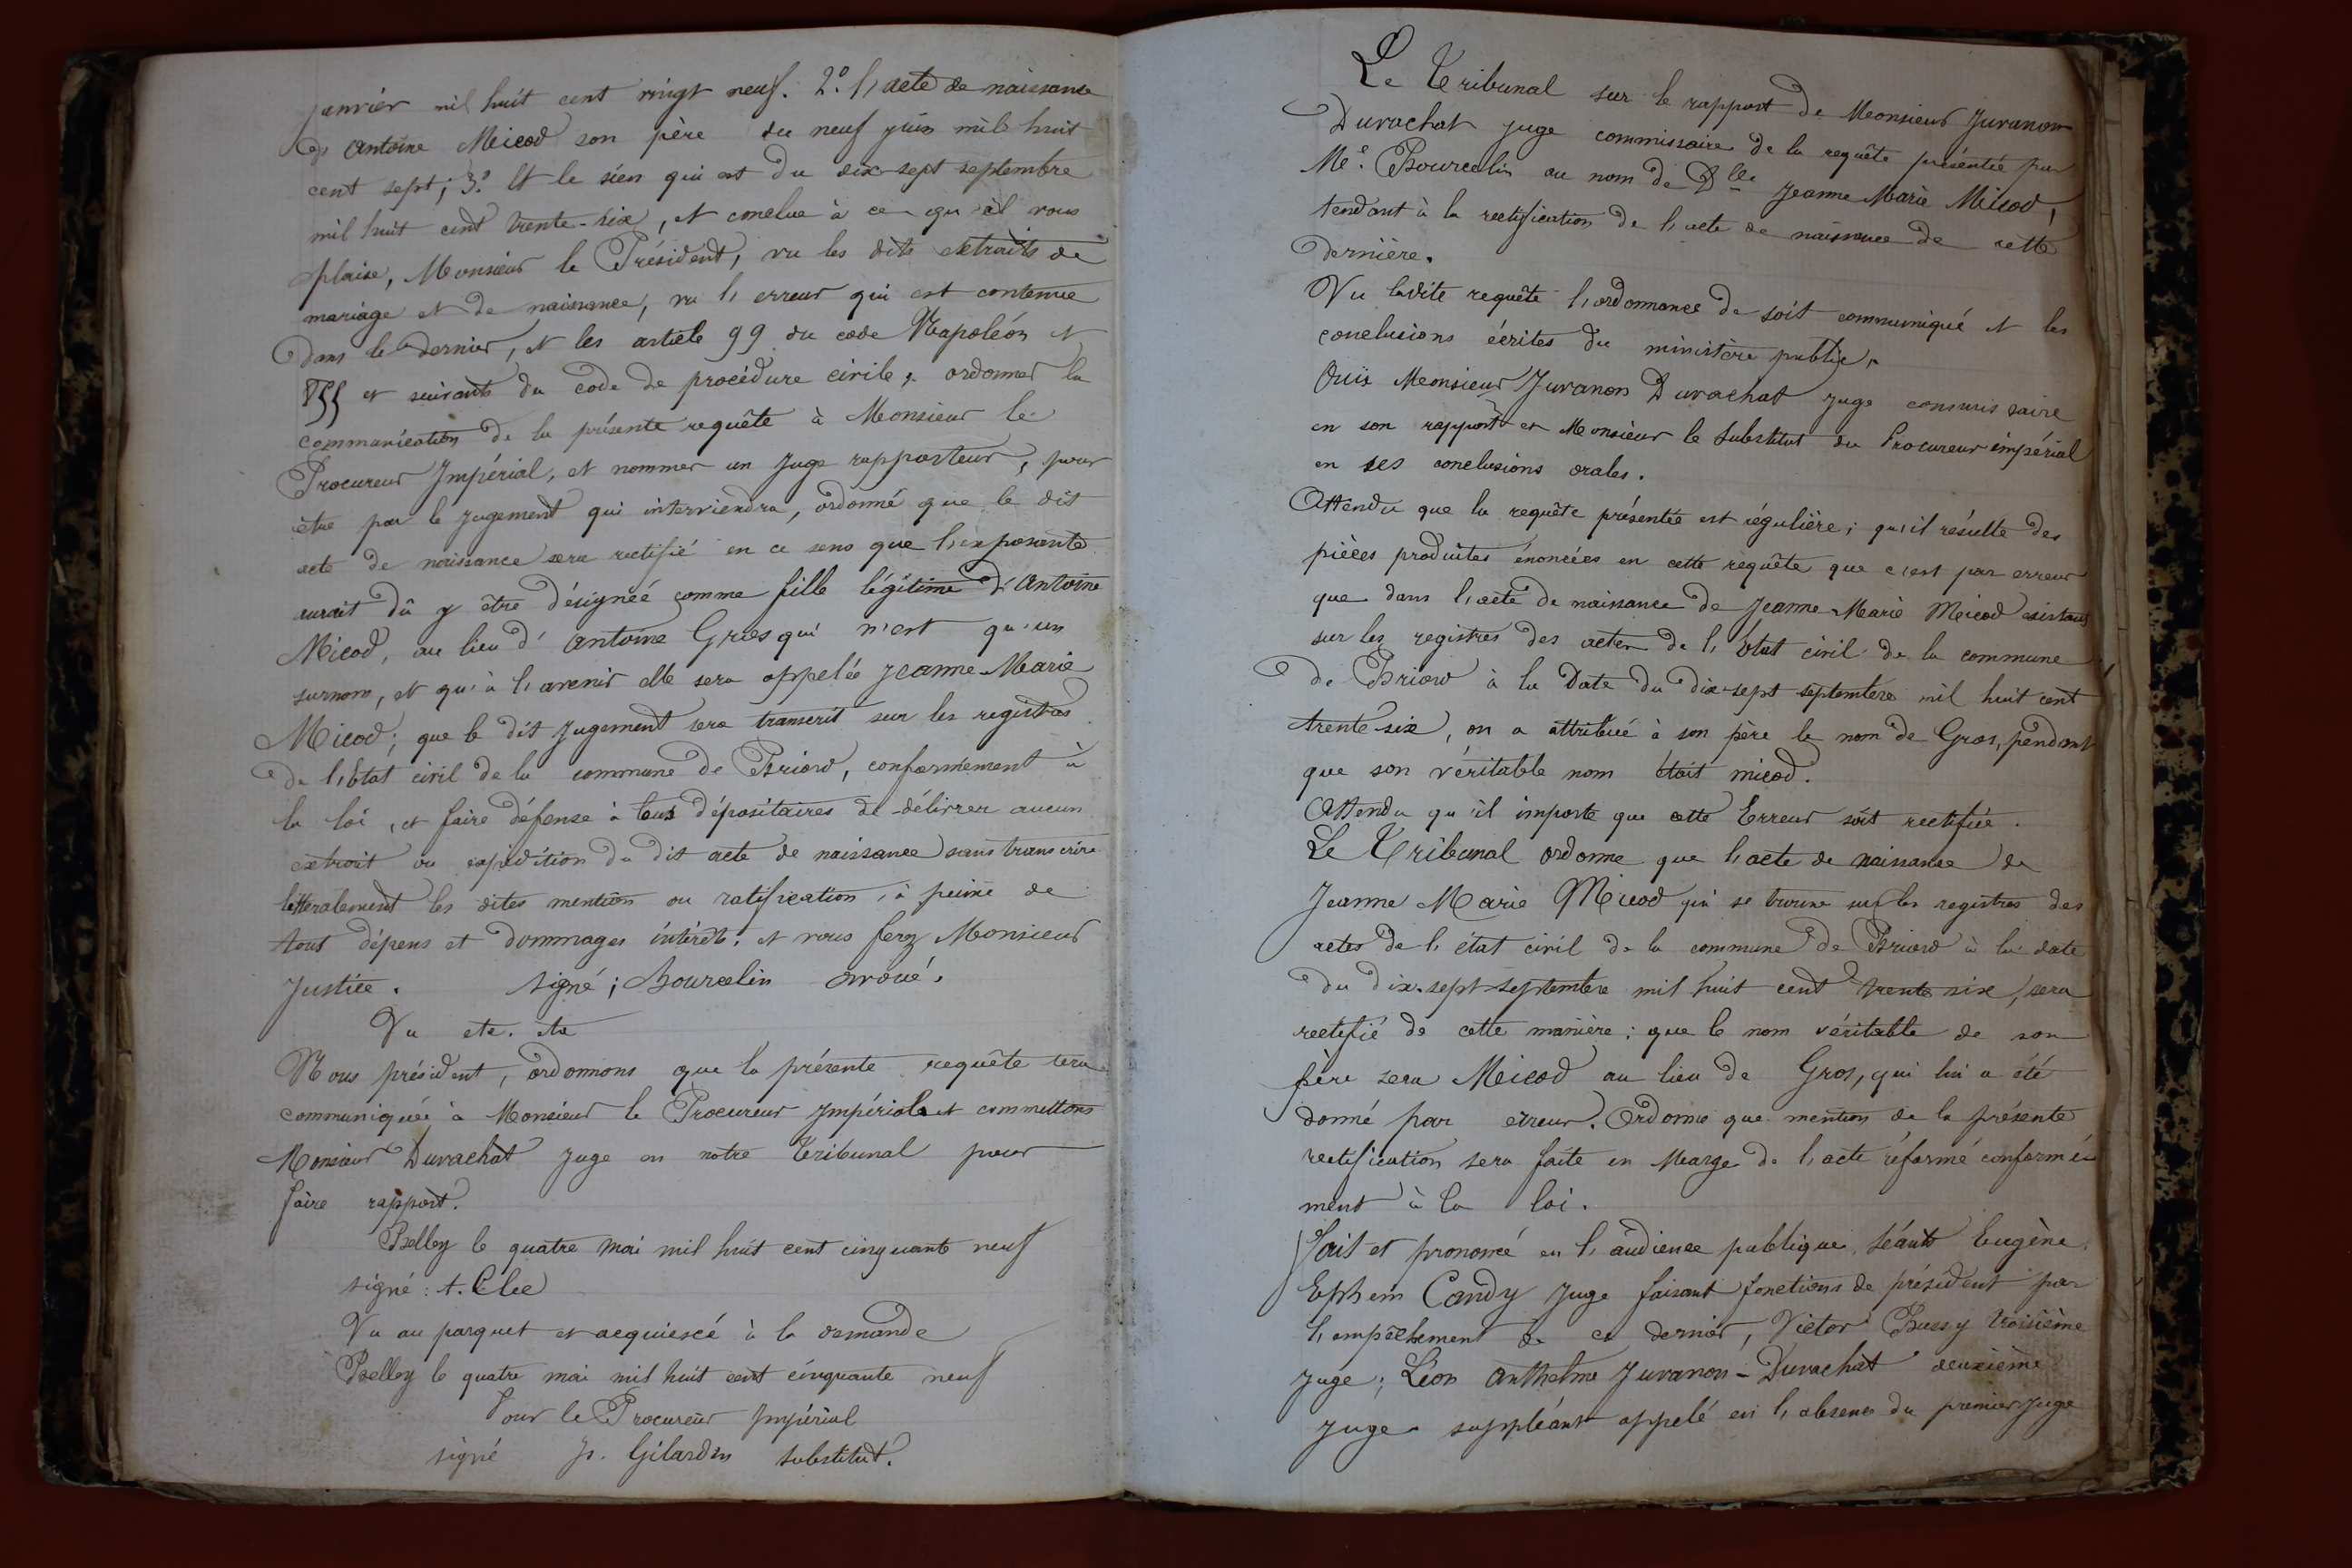 janvier mil huit cent vingt neuf. 2º. l'acte de naissance
d'Antoine Micod son père du neuf juin mil huit
cent sept; 3º. Et le sien qui est du dix-sept septembre
mil huit cent trente-six, et conclue à ce qu'il vous
plaise, Monsieur le Président, vu les dits extraits de
mariage et de naissance, vu l'erreur qui est contenue
dans le dernier, et les article 99 du code Napoléon et
855 et suivants du code de procédure civile, ordonner la
communication de la présente requête à Monsieur le
Procureur Impérial, et nommer un Juge rapporteur, pour
être par le jugement qui interviendra, ordonné que le dit
acte de naissance sera rectifié en ce sens que l'exposante
aurait dû y être désignée comme fille légitime d'Antoine
Micod, au lieu d'Antoine Gros qui n'est qu'un
surnom, et qu'à l'avenir elle sera appelée Jeanne-Marie
Micod; que le dit Jugement sera transcrit sur les registres
de l'Etat civil de la commune de Briord, conformément à
la loi, et faire défense à tous dépositaires de délivrer aucun
extrait ou expédition du dit acte de naissance sans transcrire
littéralement les dites mention ou ratification, à peine de
tous dépens et dommages intérêts. et vous ferez Monsieur
Justice. signé; Bourcelin avoué.
Vu etc. etc
Nous président, ordonnons que la présente requête sera
communiquée à Monsieur le Procureur Impérial et commettons
Monsieur Duvachat Juge en notre Tribunal pour
faire rapport.
Belley le quatre mai mil huit cent cinquante neuf
signé: t. Clec
Vu au parquet et acquiescé à la demande
Belley le quatre mai mil huit cent cinquante neuf
Pour le Procureur Impérial
signé J. Gilardin substitut.
Le Tribunal sur le rapport de Monsieur Juvanon
Duvachat juge commissaire de la requête présentée par
Me. Bourcelin au nom de Dlle Jeanne Marie Micod,
tendant à la rectification de l'acte de naissance de cette
dernière.
Vu ladite requête l'ordonnance de soit communiqué et les
conclusions écrites du ministère public,
Ouïs Monsieur Juvanon Duvachat juge commissaire
en son rapport et Monsieur le Substitut du Procureur impérial
en ses conclusions orales.
Attendu que la requête présentée est régulière; qu'il résulte des
pièces produites énoncées en cette requête que c'est par erreur
que dans l'acte de naissance de Jeanne-Marie Micod existant
sur les registres des actes de l'Etat civil de la commune
de Briord à la Date du dix-sept septembre mil huit cent
trente-six, on a attribué à son père le nom de Gros, pendant
que son véritable nom était micod.
Attendu qu'il importe que cette Erreur soit rectifiée.
Le Tribunal ordonne que l'acte de naissance de
Jeanne Marie Micod qui se trouve sur les registres des
actes de l'état civil de la commune de Briord à la date
du dix-sept septembre mil huit cent trente six, sera
rectifié de cette manière: que le nom véritable de son
père sera Micod au lieu de Gros, qui lui a été
donné par erreur. Ordonne que mention de la présente
rectification sera faite en Marge de l'acte réformé conformé
ment à la loi.
Fait et prononcé en l'audience publique, séants Eugène
Ephem Candy Juge faisant fonctions de président par
l'empêchement de ce dernier, Victor Buesy troisième
Juge; Léon Anthelme Juvanon-Duvachat deuxième
Juge suppléant appelé en l'absence du premier Juge